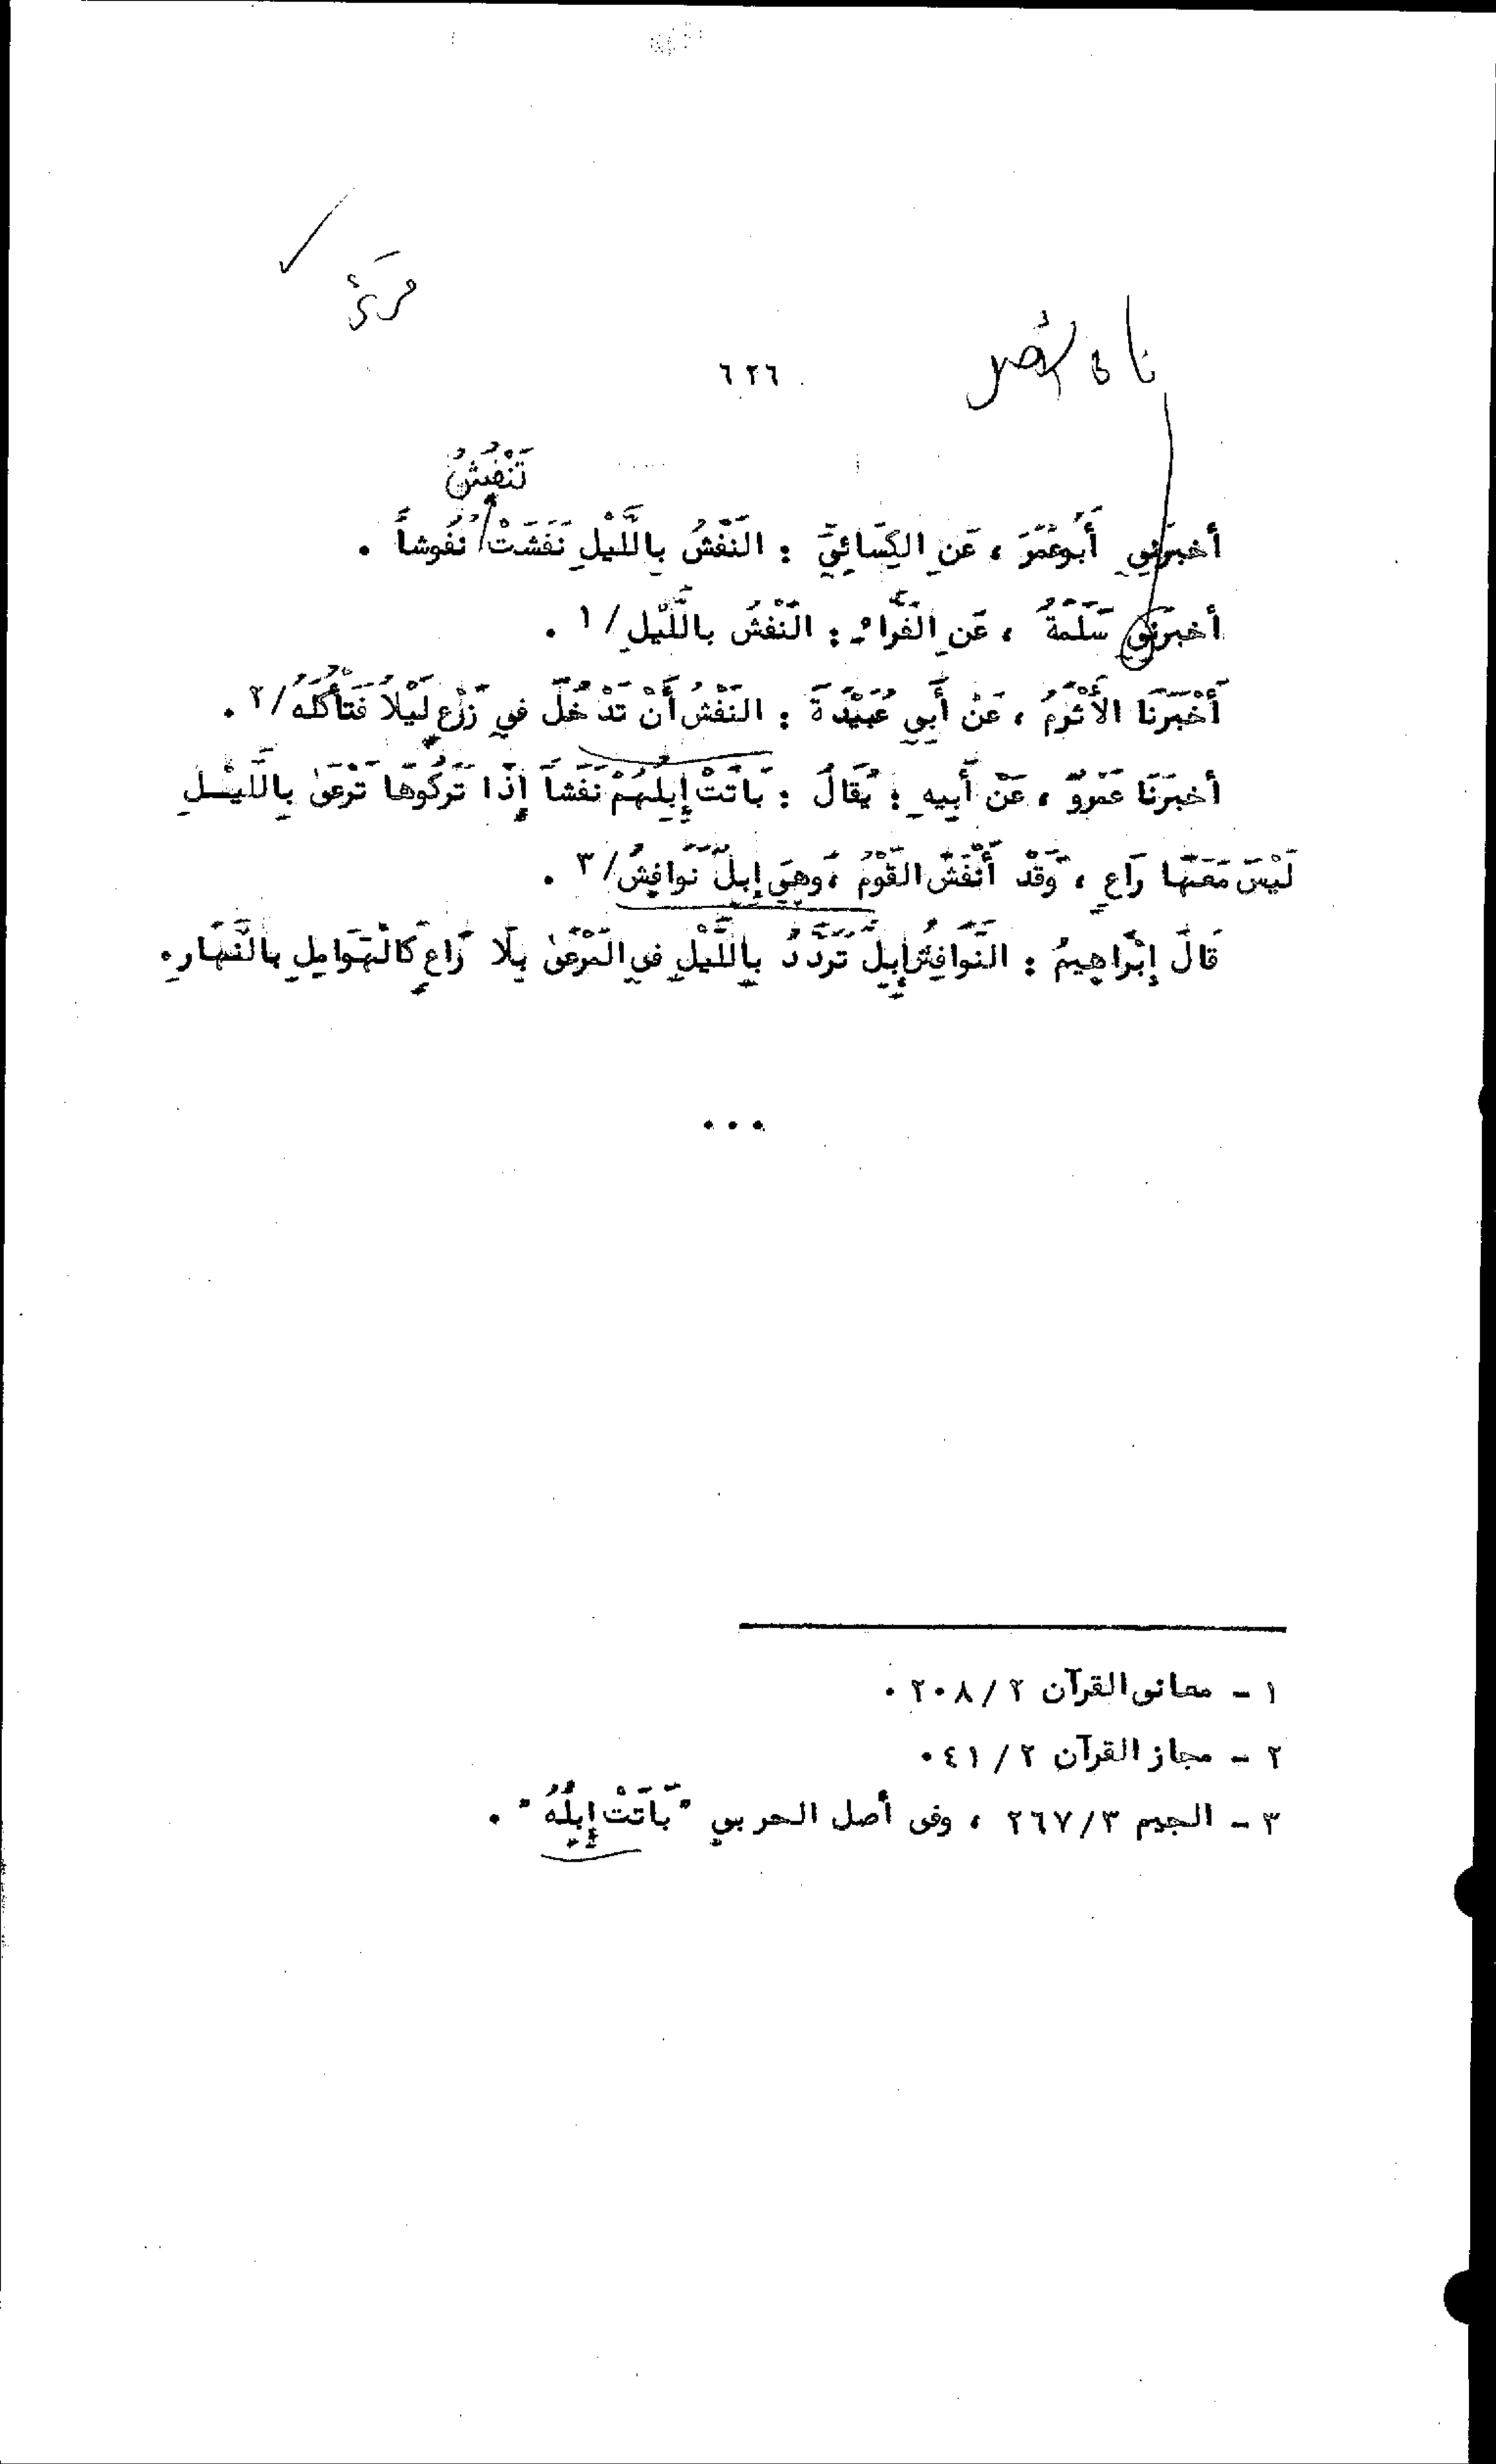 قرئ
٦٢٦
تَنْفُشُ
أخبَرَنِي أَبُوعُمَرَ ، عَنِ الكِسَائِيِّ : النَّفْشُ بِاللَّيْلِ نَفَشَتْ / نُفُوشاً .
أخبَرَنِي سَلَمَةُ ، عَنِ الفَرَّاءِ : النَّفْشُ بِاللَّيْلِ /١ .
أَخْبَرَنَا الأَثْرَمُ ، عَنْ أَبِي عُبَيْدَةَ : النَّفْشُ أَنْ تَدْخُلَ فِي زَرْعٍ لَيْلاً فَتَأْكُلَهُ /٢ .
أخبَرَنَا عَمْرٌو ، عَنْ أَبِيهِ : يُقَالُ : بَاتَتْ إِبِلُهُمْ نَفَشاً إِذَا تَرَكُوهَا تَرْعَىٰ بِاللَّيْلِ
لَيْسَ مَعَهَا رَاعٍ ، وَقَدْ أَنْفَشَ القَوْمُ ، وَهِيَ إِبِلٌ نَوَافِشُ /٣ .
قَالَ إِبْرَاهِيمُ : النَّوَافِشُ إِبِلٌ تَرَدَّدُ بِاللَّيْلِ فِي المَرْعَىٰ بِلَا رَاعٍ كَالْهَوَامِلِ بِالنَّهَارِ .
٠٠٠
١ - معانى القرآن ٢ / ٢٠٨ .
٢ - مجاز القرآن ٢ / ٤١ .
٣ - الجيم ٣ / ٢٦٧ ، وفى أصل الحربي " بَاتَتْ إِبِلُهُ " .